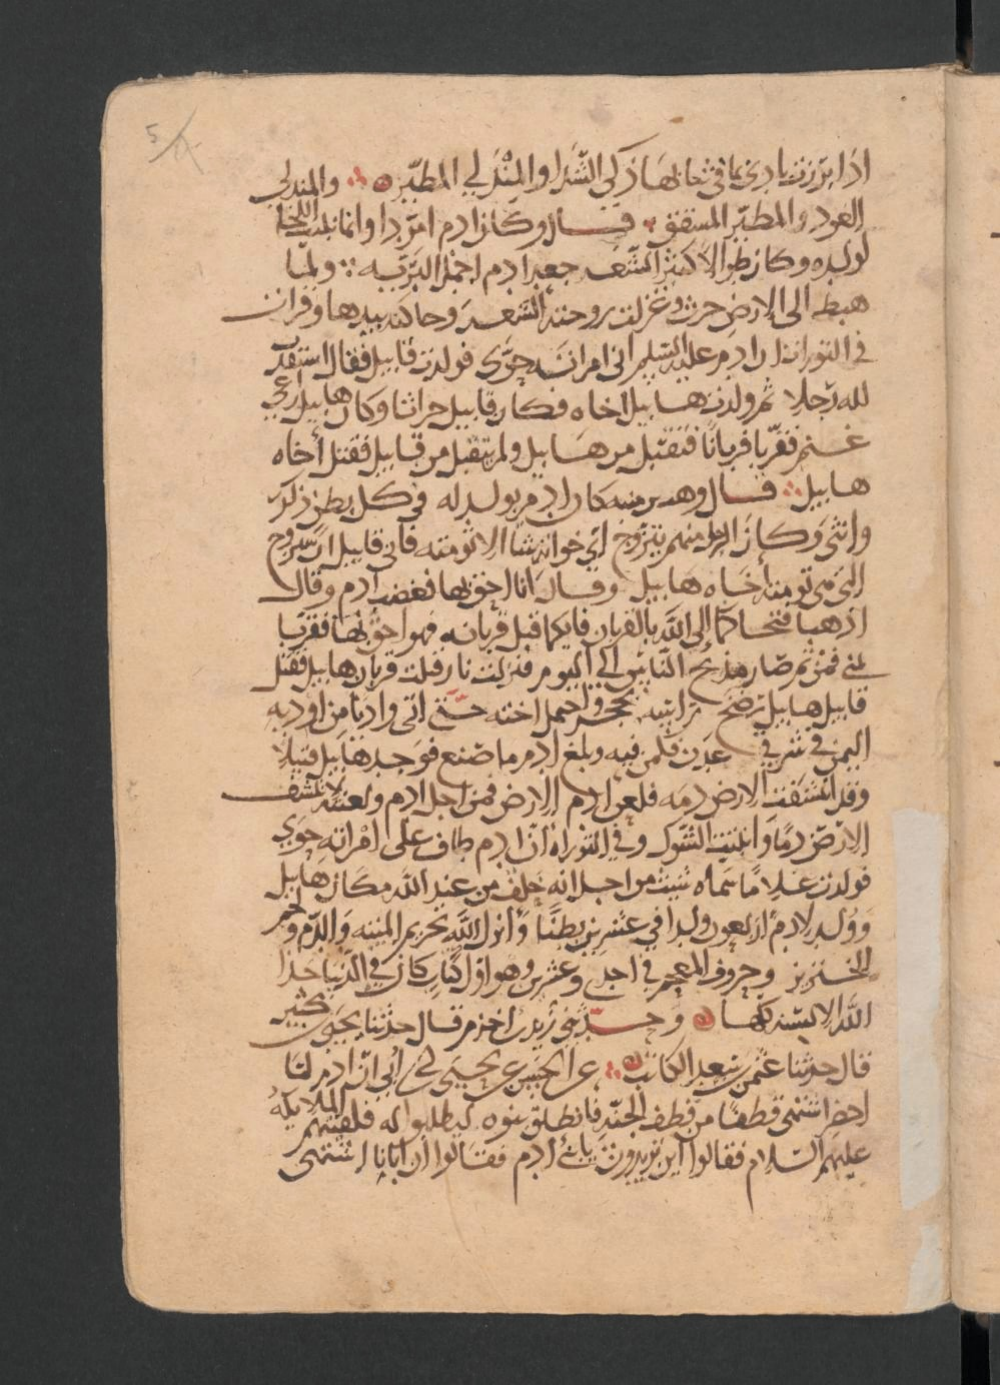 اذا برزت نادى بما في ثيابها ذكي الشذا والمندلي المطير ۞ والمندلي
العود والمطير المشقق قال وكان ادم امرد وانما نبتت اللحا
لولده وكان طوالا كثير الشعر جعدا ادم اجمل البرية ولما
هبط الى الارض حرث وغزلت زوجته الشعر وحاكته بيدها وقرات
في التوراة ان ادم عليه السلم اتى امراته حوى فولدت قابيل فقال استفدت
لله رجلا ثم ولدت هابيل اخاه فكان قابيل حراثا وكان هابيل راعي
غنم فقربا قربانا فتقبل من هابيل ولم يتقبل من قابيل فقتل أخاه
هابيل قال وهب بن منبه كان ادم يولد له في كل بطن ذكر
وانثى وكان الرجل منهم يتزوج اي اخواته شا الا توءمته فابى قابيل ان يتزوج
التي هي تومته أخاه هابيل وقال انا احق بها فغضب ادم وقال
اذهبا فتحاكما إلى الله بالقربان فايكما قبل قربانه فهو احق بها فقربا
بمنى فمن ثم صار مذبح الناس الى اليوم فنزلت نار فقبلت قربان هابيل فقتل
قابيل هابيل رضخ راسه بحجر واحتمل اخته حتى اتى واديا من اودية
اليمن في شرقي عدن فكمن فيه وبلغ ادم ما صنع فوجد هابيل قتيلا
وقد نشفت الارض دمه فلعن ادم الارض فمن اجل ادم ولعنته لا تنشف
الارض دما وانبتت الشوك وفي التوراة ان ادم طاف على امراته حوى
فولدت غلاما سماه شيث من اجل انه خلف من عند الله مكان هابيل
وولد لادم اربعون ولدا في عشرين بطنا وأنزل الله تحريم الميته والدم ولحم
الخنزير وحروف المعجم في احدى وعشرين وهو اول كتاب كان في الدنيا حذا
الله الالسنه كلها ۞ وحدثني زيد بن اخزم قال حدثنا يحيى بن كثير
قال حدثنا عثمن بن سعد الكاتب عن الحسن عن عتي عن أبي ان ادم لما
احتضر اشتهى قطفا من قطف الجنة فانطلق بنوه ليطلبوا له فلقيتهم الملايكة
عليهم السلام فقالوا اين تريدون يا بني ادم فقالوا ان ابانا اشتهى